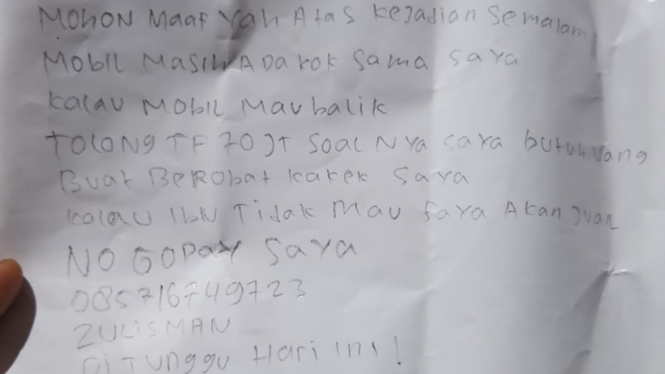 MOHON Maaf Yah Atas Kejadian Semalam
MOBIL MASIH ADA KOK Sama Saya
Kalau MOBIL Mau balik
TOLONG TF 70 JT SOAL NYA Saya butuh uang
Buat BEROBAT KAKEK Saya
Kalau IBU TIDAK Mau Saya AKAN JUAL
NO GOPAY Saya
085716749723
ZULISMAN
DI TUNGGU HARI INI !